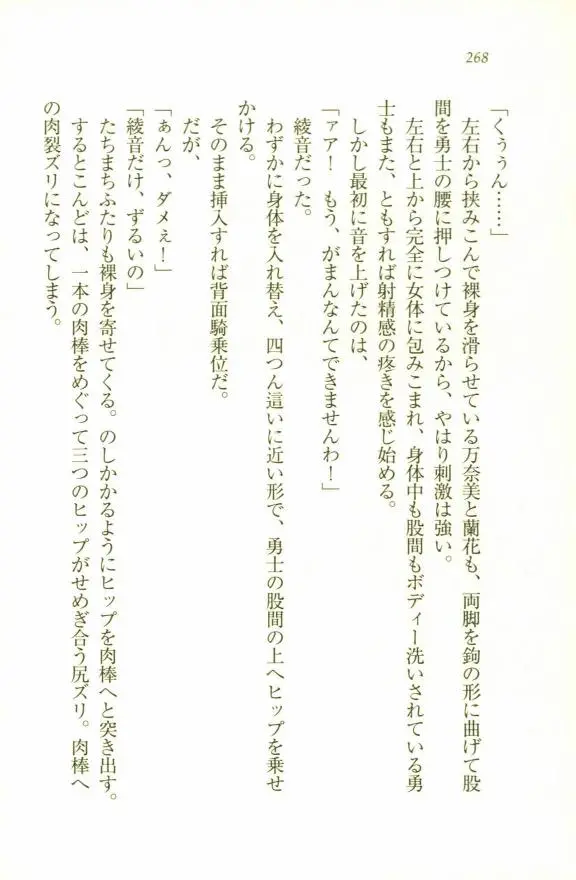 268
「くぅぅん……」
　左右から挟みこんで裸身を滑らせている万奈美と蘭花も、両脚を鉤の形に曲げて股
間を勇士の腰に押しつけているから、やはり刺激は強い。
　左右と上から完全に女体に包みこまれ、身体中も股間もボディー洗いされている勇
士もまた、ともすれば射精感の疼きを感じ始める。
　しかし最初に音を上げたのは、
「ァア！　もう、がまんなんてできませんわ！」
　綾音だった。
　わずかに身体を入れ替え、四つん這いに近い形で、勇士の股間の上へヒップを乗せ
かける。
　そのまま挿入すれば背面騎乗位だ。
　だが、
「ぁんっ、ダメぇ！」
「綾音だけ、ずるいの」
　たちまちふたりも裸身を寄せてくる。のしかかるようにヒップを肉棒へと突き出す。
　するとこんどは、一本の肉棒をめぐって三つのヒップがせめぎ合う尻ズリ。肉棒へ
の肉裂ズリになってしまう。